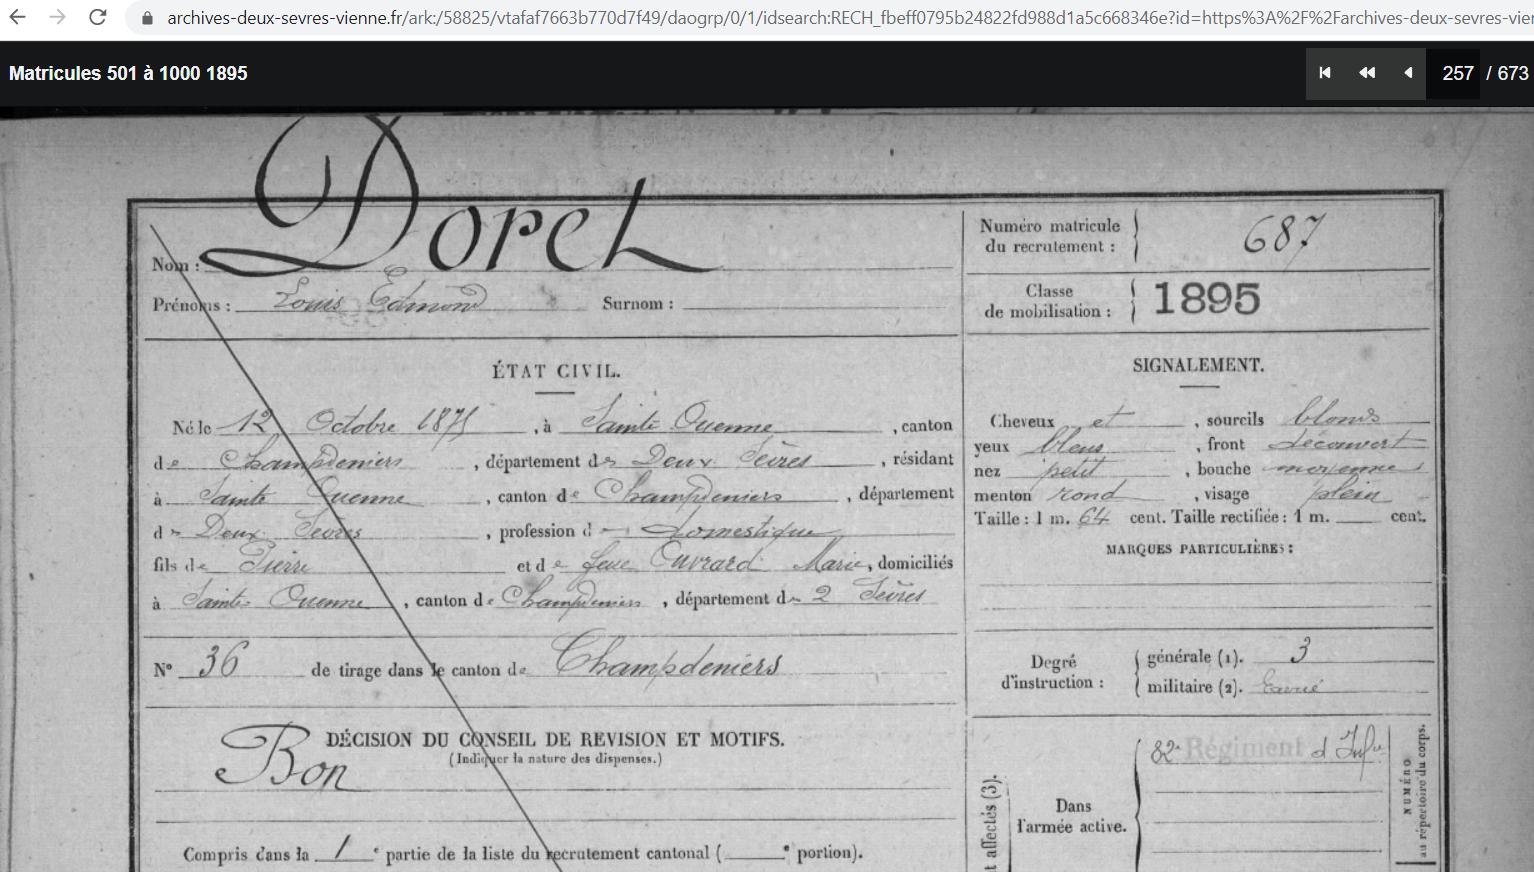 archives-deux-sevres-vienne.fr/ark:/58825/vtafaf7663b770d7f49/daogrp/0/1/idsearch:RECH_fbeff0795b24822fd988d1a5c668346e?id=https%3A%2F%2Farchives-deux-sevres-vien
Matricules 501 à 1000 1895
257 / 673
Nom : Doret
Prénoms : Louis Edmond Surnom :
Numéro matricule du recrutement : 687
Classe de mobilisation : 1895
ÉTAT CIVIL.
Né le 12 Octobre 1875, à Sainte Ouenne, canton
de Champdeniers, département des Deux Sèvres, résidant
à Sainte Ouenne, canton de Champdeniers, département
des Deux Sèvres, profession de domestique
fils de Pierre et de feue Ouvrard Marie, domiciliés
à Sainte Ouenne, canton de Champdeniers, département des 2 Sèvres
N° 36 de tirage dans le canton de Champdeniers
SIGNALEMENT.
Cheveux et, sourcils blonds
yeux bleus, front découvert
nez petit, bouche moyenne
menton rond, visage plein
Taille : 1 m. 64 cent. Taille rectifiée : 1 m. cent.
MARQUES PARTICULIÈRES :
Degré d'instruction :
générale (1). 3
militaire (2). Exercé
DÉCISION DU CONSEIL DE REVISION ET MOTIFS.
(Indiquer la nature des dispenses.)
Bon
Compris dans la 1e partie de la liste du recrutement cantonal ( e portion).
t affectés (3).
Dans l'armée active.
82e Régiment d'Infie
NUMÉRO
au répertoire du corps.